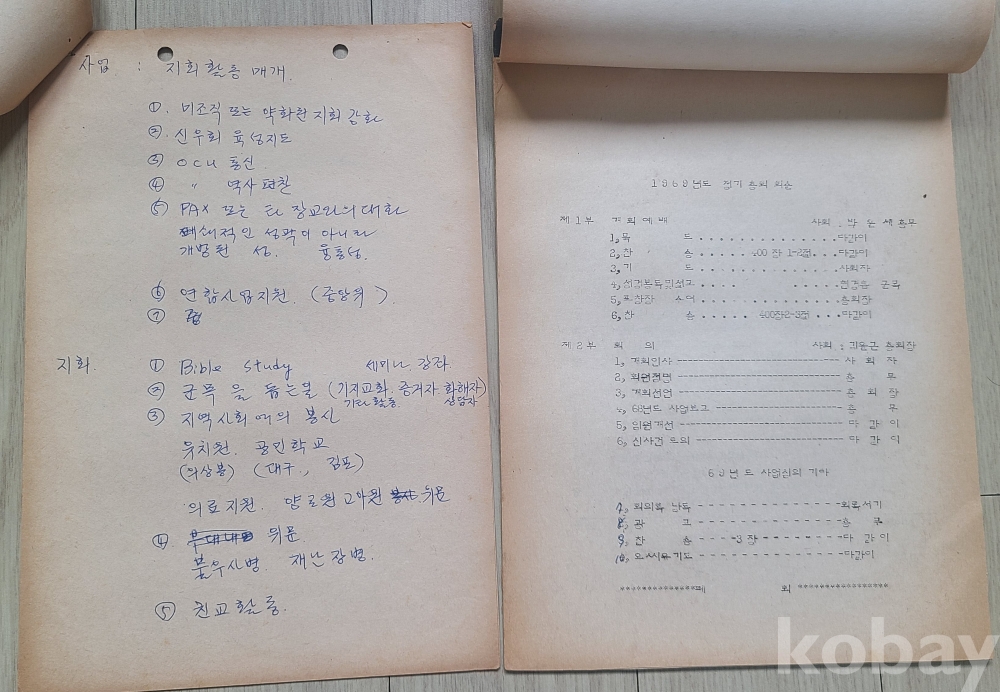 사업 : 지회활동 매개.
① 미조직 또는 약화된 지회 강화
② 신우회 육성지도
③ OCU 통신
④ 〃 역사편찬
⑤ PAX 또는 타 장교와의 대화
폐쇄적인 성곽이 아니라
개방된 성. 융통성.
⑥ 연합사업지원. (중앙위)
⑦
지회.
① Bible study 세미나 강좌.
② 군목을 돕는 일 (기지교화. 증거자. 화해자)
기타활동 상담자
③ 지역사회에의 봉사
유치원. 공민학교
(의상봉) (대구., 김포)
의료지원. 양로원 고아원 위문
④ 위문.
불우사병. 재난장병.
⑤ 친교활동.
1969년도 정기 총회 의순
제1부 개회예배 사회 : 박 총무
1, 묵 도 다같이
2, 찬 송 400장 1-2절 다같이
3, 기 도 사회자
4, 성경봉독및설교 군목
5, 표창장 수여 총회장
6, 찬 송 400장2-3절 다같이
제2부 회 의 사회 : 총회장
1, 개회인사 사 회 자
2, 회원점명 총 무
3, 개회선언 총 회 장
4, 68년도 사업보고 총 무
5, 임원개선 다 같 이
6, 신사건 토의 다 같 이
69년도 사업심의
7, 회의록 낭독 회록서기
8, 광 고 총 무
9, 찬 송 3장 다 같 이
10, 기도 다같이
폐 회
kobay